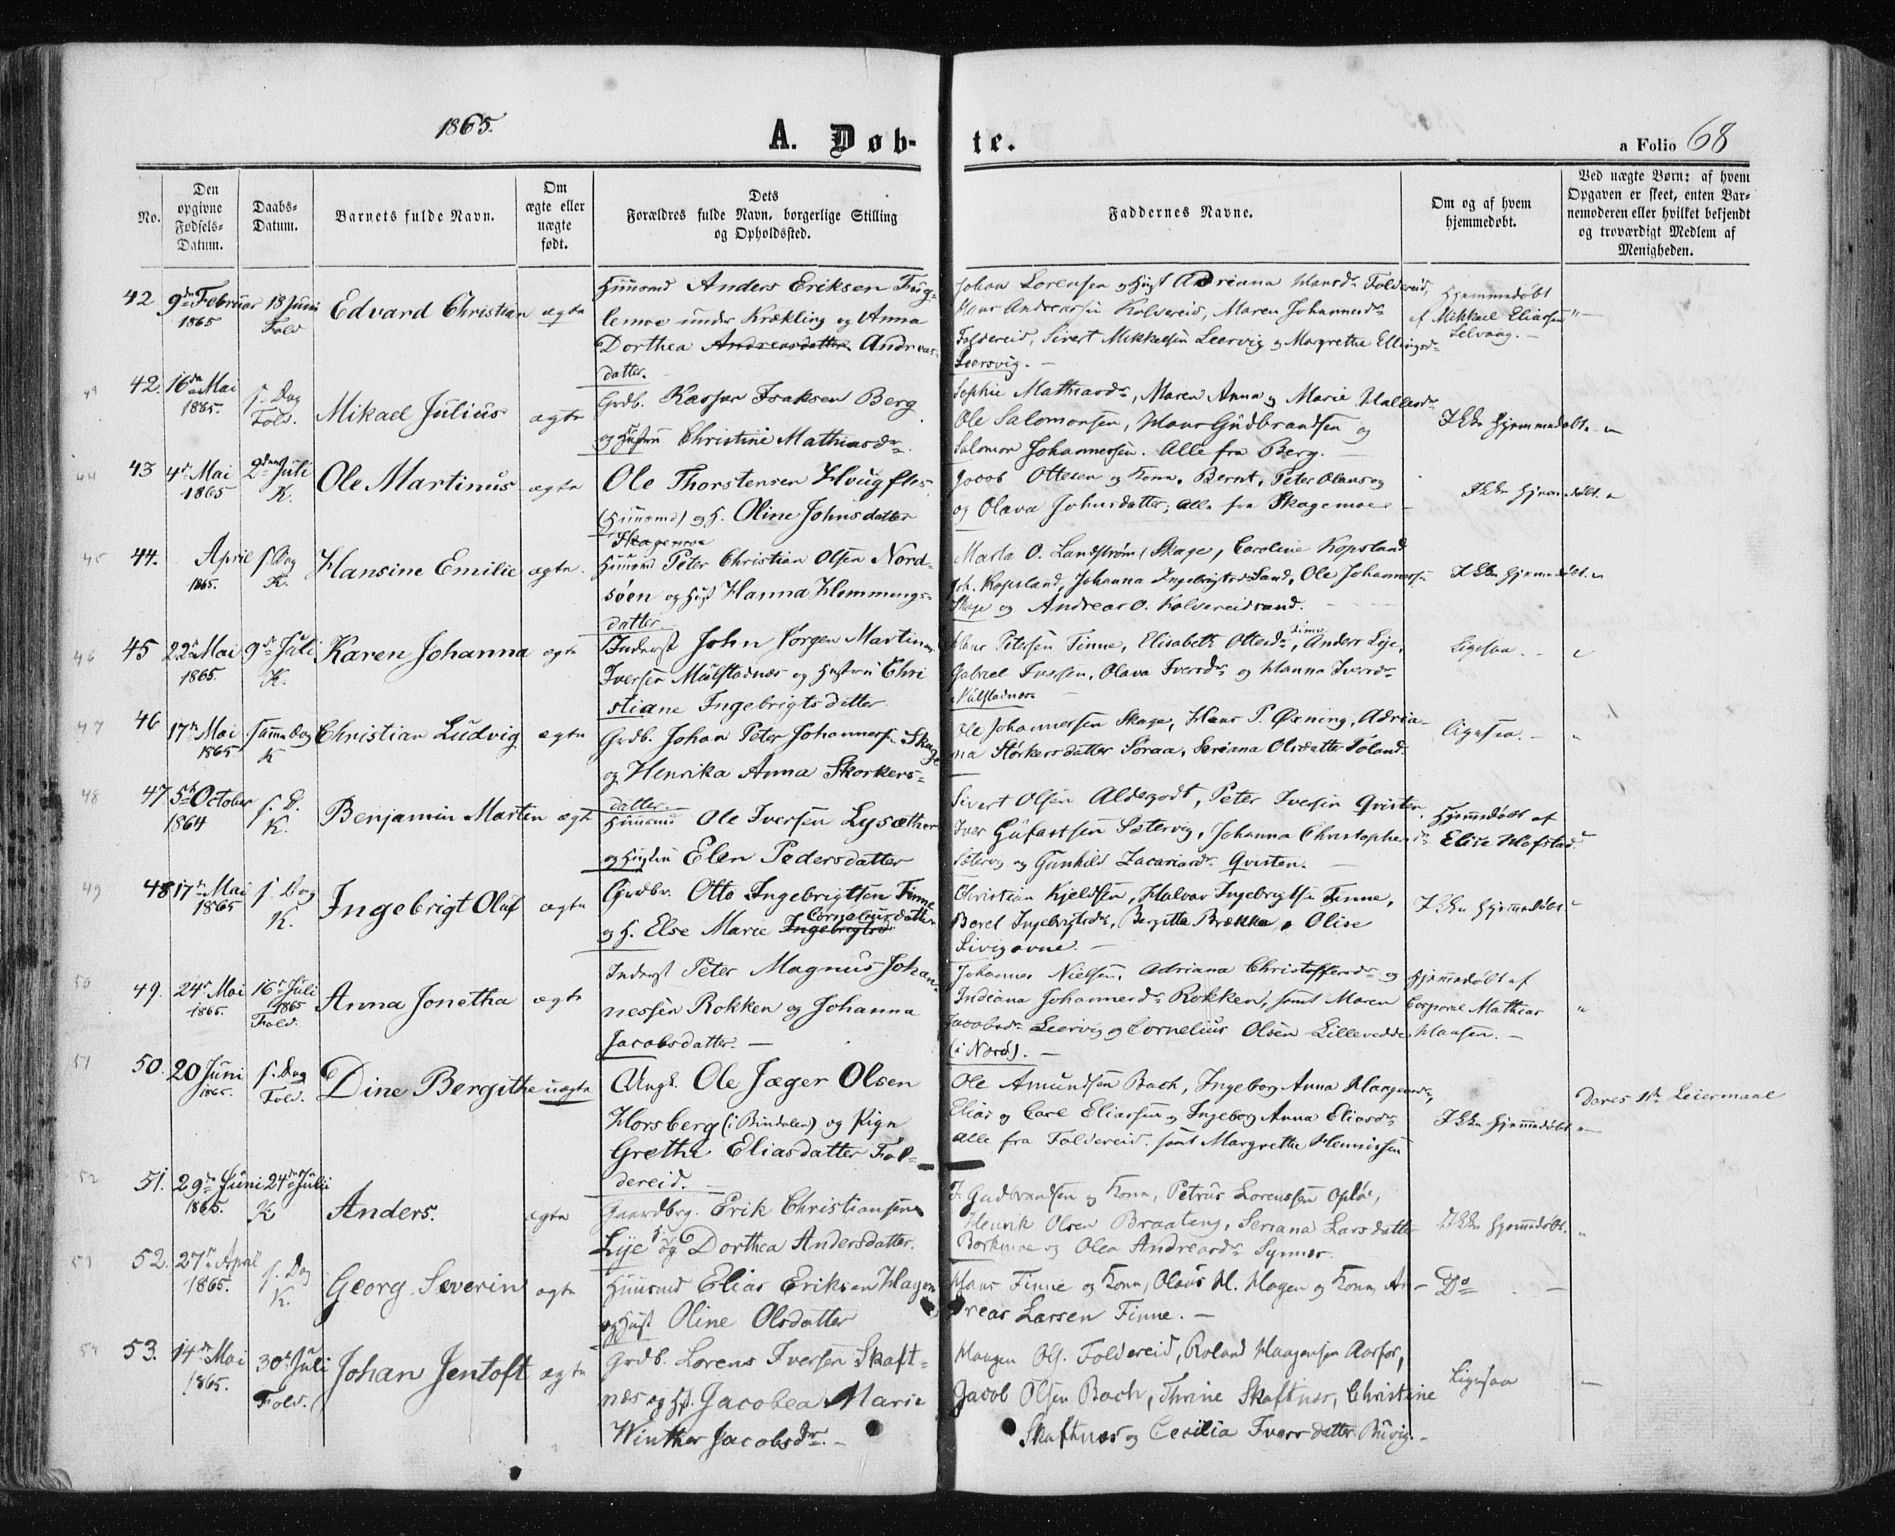 1865.
A. Døb-
te.
a Folio 68
No.
Den opgivne Fødsels-Datum.
Daabs-Datum.
Barnets fulde Navn.
Om ægte eller nægte født.
Dets Forældres fulde Navn, borgerlige Stilling og Opholdssted.
Faddernes Navne.
Om og af hvem hjemmedøbt.
Ved nægte Børn: af hvem Opgaven er skeet, enten Barnemoderen eller hvilket bekjendt og troværdigt Medlem af Menigheden.
42 9de Februar 1865 18 Juni Fold Edvard Christian ægte
Huusmd Anders Eriksen Fug-
lemoe under Krækling og Anna
Dorthea Andreasdatter Andreas-
datter.
Johan Lorensen og Hust Adriana Hansdr Foldereid,
Hans Andreassen Kolvereid, Maren Johannesdr
Foldereid, Sivert Mikkelsen Leervig og Margrethe Ellingsdr
Leervig.
Hjemmedøbt
af Mikkael Eliassen
Selvaag.
43
42. 16de Mai 1865. s. Dag Fold. Mikael Julius ægte
Grdb. Kasper Isaksen Berg
og Hustru Christine Mathiasdr.
Sophie Mathiasdr, Maren Anna og Marie Hallesdr
Ole Salomonsen, Hans Gudbrandsen og
Salomon Johannessen. Alle fra Berg.
Ikke Hjemmedøbt
44
43 4de Mai 1865 2den Juli K. Ole Martinus ægte
Ole Thorstensen Haugfles
(Huusmd) og H. Oline Johnsdatter
Skagemoe
Jacob Ottesen og Kone, Bernt, Peter Olaus og
og Olava Johnsdatter, alle fra Skagemoe
Ikke Hjemmedøbt
45
44. April 1865. s. Dag K. Hansine Emilie ægte.
Huusmd Peter Christian Olsen Nord-
søen og Hust Hanna Hemmings-
datter
Marta O. Landstrøm, Skage, Caroline Kopsland
Joh. Kopsland, Johanna Ingebrigtsdr Sand, Ole Johannessen
Skage og Andreas O. Kolvereidsand.
Ikke Hjemmedøbt
46
45 22de Mai 1865. 9de Juli K. Karen Johanna ægte
Inderst John Jørgen Martinus
Iversen Mulstadnæs og Hustru Chri
stiane Ingebrigtsdatter
Hans Petersen Finne, Elisabeth Ottesdr Finne, Anders Lije,
Gabriel Iversen, Olava Iversdr og Hanna Iversdr
Mulstadnæs
Ligesaa.
47
46 17de Mai 1865. samme Dag K Christian Ludvig ægte
Grdb. Johan Peter Johannessen Skage
og Henrika Anna Skorkers-
datter.
Ole Johannessen Skage, Hans P. Øxning, Adria-
na Størkersdatter Søraa, Seriana Olsdatter Foland.
Ligesaa.
48
47 5te October 1864 s. D. K. Benjamin Marten ægte
Huusmd Ole Iversen Lysæther
og Hustru Elen Pedersdatter
Sivert Olsen Aldergodt, Peter Iversen Qvisten,
Iver Gufastsen Sætervig, Johanna Christophersdr
Sætervig og Gunhild Zacariasdr Qvisten.
Hjemmedøbt af
Elise Hofstad
49
48 17de Mai 1865 s. Dag K. Ingebrigt Oluf ægte
Grdbr. Otto Ingebrigtsen Finne
og H. Else Marie Ingebrigtsd Corneliusdatter
Christian Kjeldsen, Halvor Ingebrigtsen Finne,
Berel Ingebrigtsdr, Bergitte Brækka, Olise
Livigovne.
Ikke Hjemmedøbt
50
49. 24de Mai 1865. 16de Juli 1865 Fold. Anna Jonetha ægte
Inderst Peter Magnus Johan-
nessen Rokken og Johanna
Jacobsdatter.
Johannes Nielsen, Adriana Christoffersdr og
Indiana Johannesdr Rokken, samt Maren
Jacobsdr Leervig og Cornelius Olsen Lillevedde
(i Nærø).
Hjemmedøbt af
Corporal Mathias
Hansen.
51
50. 20 Juni 1865. s. Dag Fold. Dine Bergithe uægte
Ungk. Ole Jæger Olsen
Horsberg (i Bindalen) og Pige
Grethe Eliasdatter Fol-
dereid.
Ole Amundsen Bach, Ingeborg Anna Haagensdr,
Elias og Carl Eliassen og Ingeborg Anna Eliasdr
alle fra Foldereid, samt Margrethe Henriksen
Ikke Hjemmedøbt.
Deres 1ste Leiermaal
52
51. 29de Juni 1865. 24de Juli K Anders. ægte
Gaardbrg. Erik Christiansen
Lije og Dorthea Andersdatter.
J. Gudbrandsen og Kone, Petrus Lorenssen Opløe,
Henrik Olsen Braateng, Seriana Larsdatter
Borkmoe og Olea Andreasdr Synnes.
Ikke Hjemmedøbt.
53
52. 27de April 1865. s. Dag K. Georg Severin ægte
Huusmd Elias Eriksen Hagen
og Hust Oline Olsdatter
Hans Finne og Kone, Olaus H. Hagen og Kone, An-
dreas Larsen Finne.
Do
54
53. 14de Mai 1865. 30te Juli Fold. Johan Jentoft ægte
Grdb. Lorens Iversen Skaft-
næs og Hst. Jacobea Marie
Winther Jacobsdr.
Haagen Ols. Foldereid, Roland Haagensen Aarfor,
Jacob Olsen Bach, Thrine Skaftnæs, Christine
Skaftnæs og Cecilia Iversdatter Buvig.
Ligesaa